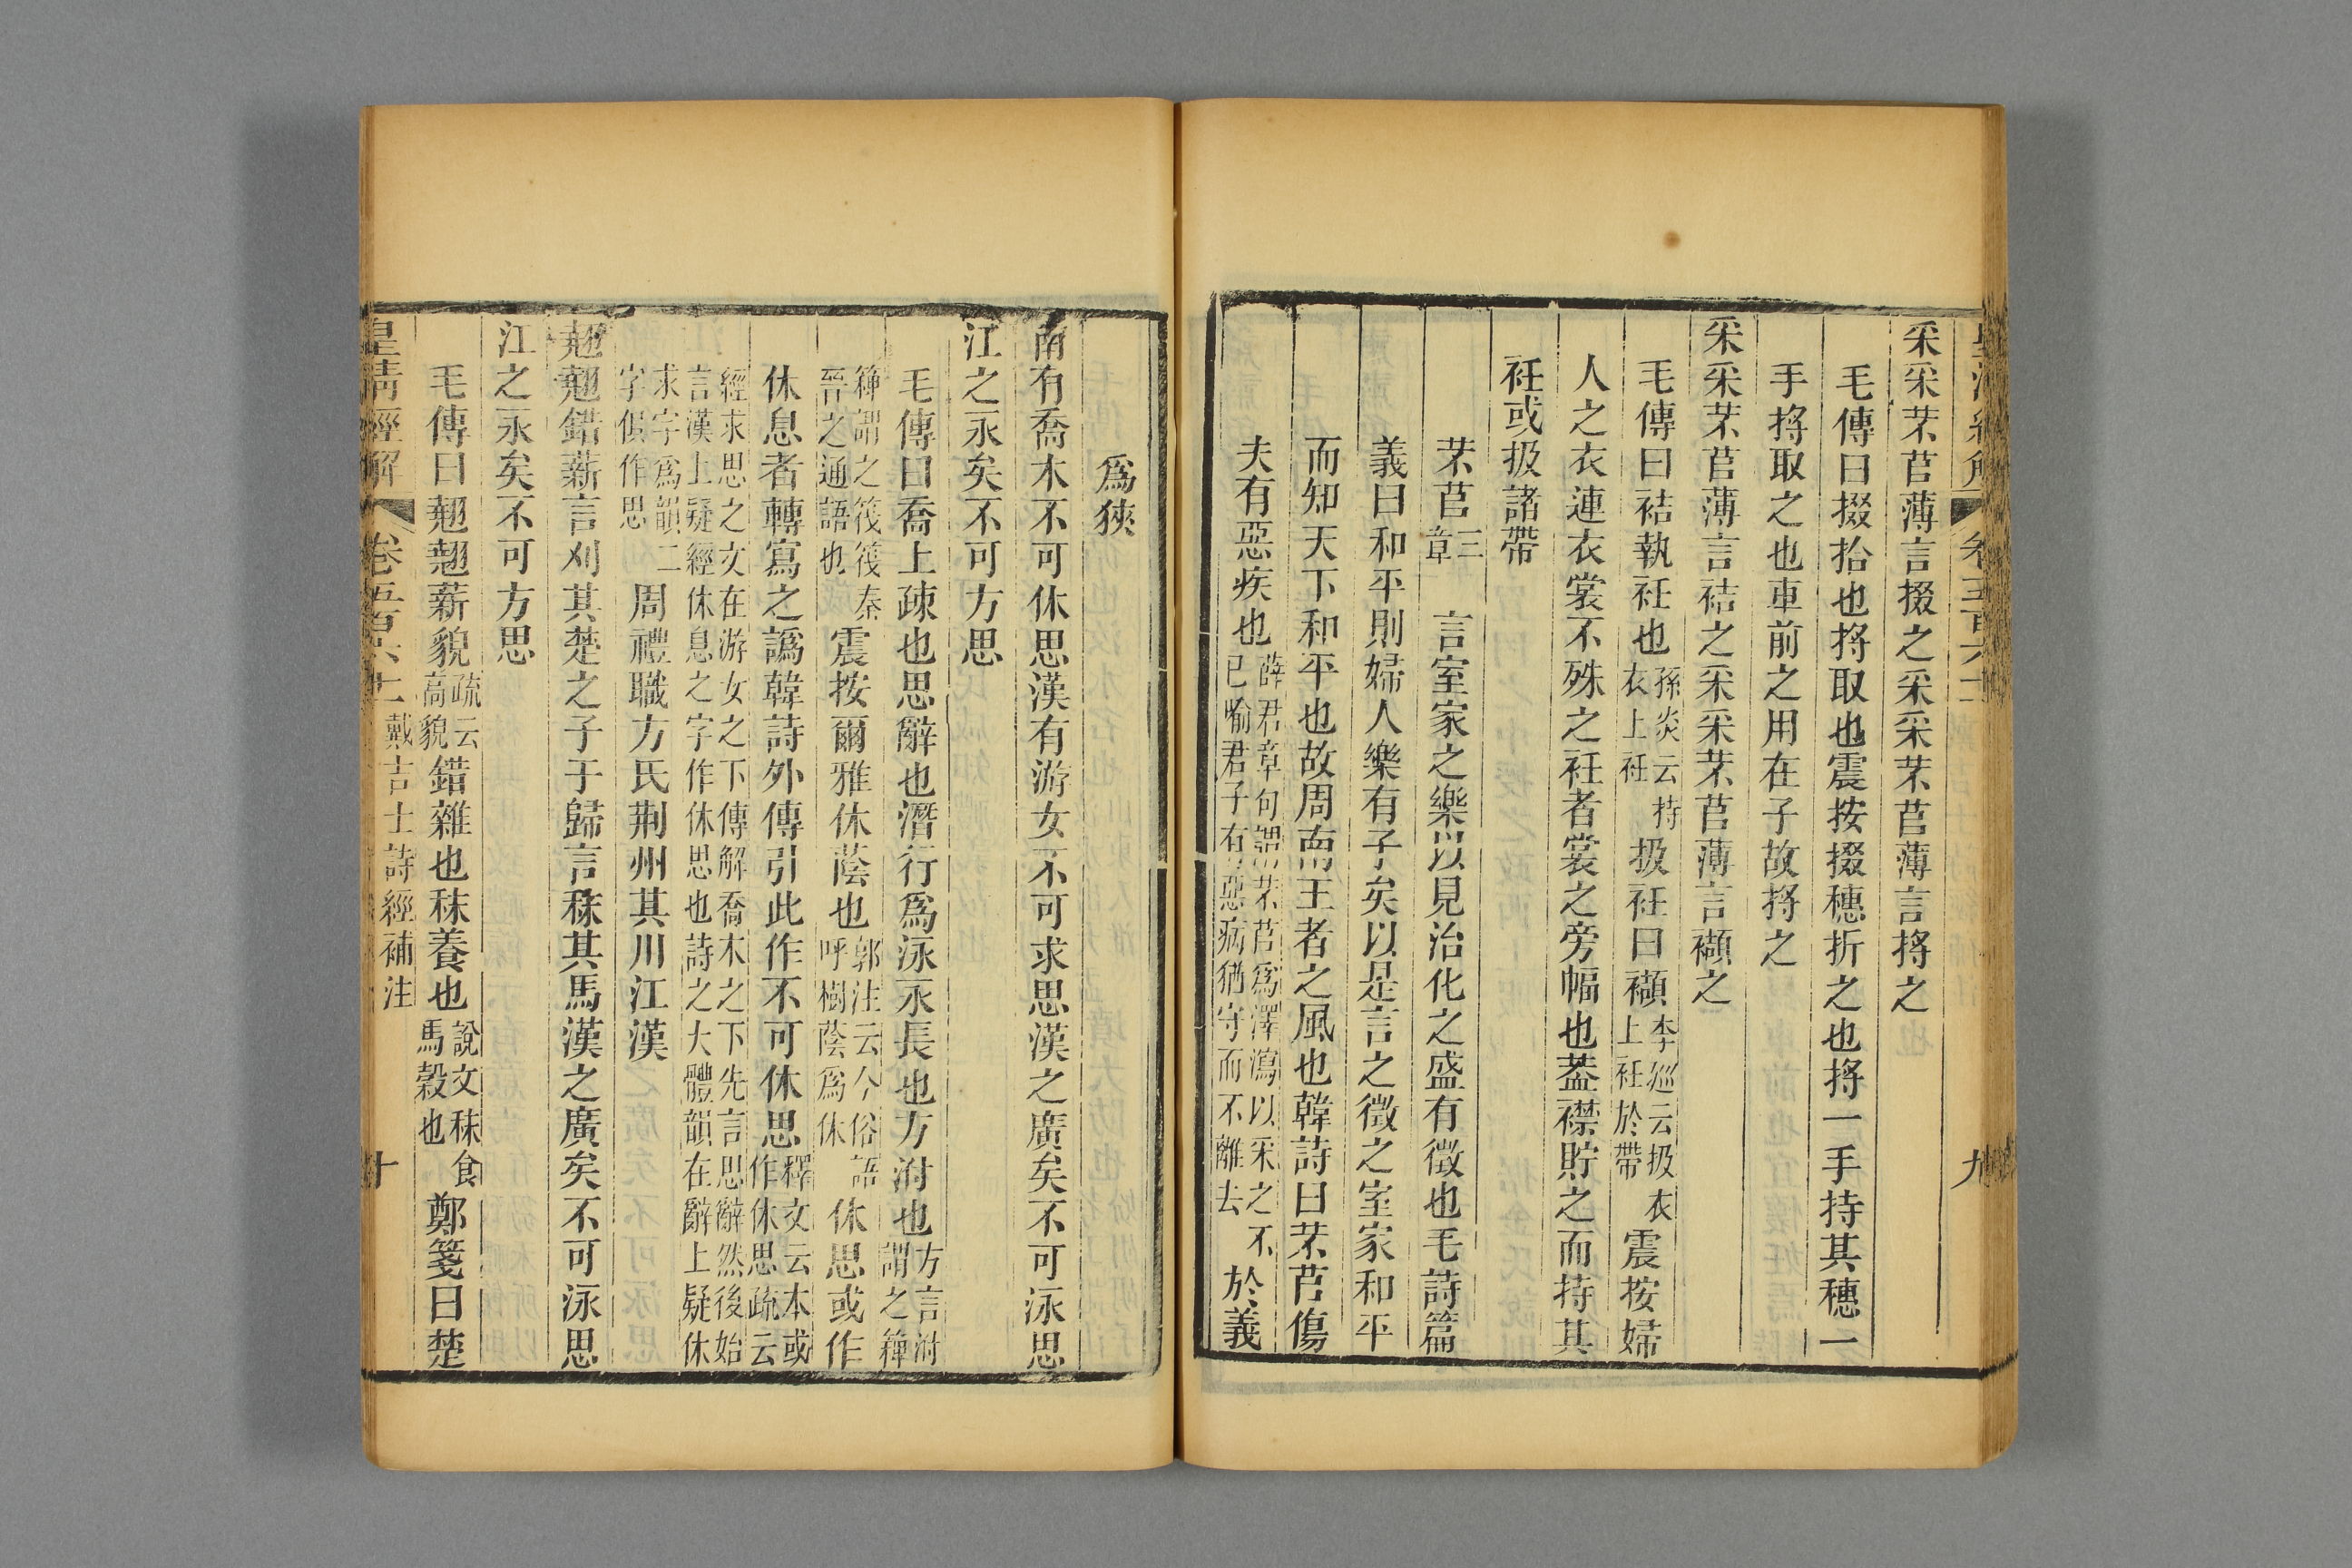 采采芣苢薄言掇之采采芣苢薄言捋之
毛傳曰掇拾也捋取也震按掇穗折之也捋一手持其穗一
手捋取之也車前之用在子故捋之
采采芣苢薄言袺之采采芣苢薄言襭之
毛傳曰袺執衽也孫炎云持衣上衽扱衽曰襭李巡云扱衣上衽於帶震按婦
人之衣連衣裳不殊之衽者裳之旁幅也葢襟貯之而持其
衽或扱諸帶
芣苢三章 言室家之樂以見治化之盛有徵也毛詩篇
義曰和平則婦人樂有子矣以是言之徵之室家和平
而知天下和平也故周南王者之風也韓詩曰芣苢傷
夫有惡疾也薛君章句謂芣苢爲澤瀉以采之不已喻君子有惡病猶守而不離去於義
爲狹
南有喬木不可休思漢有游女不可求思漢之廣矣不可泳思
江之永矣不可方思
毛傳曰喬上竦也思辭也潛行爲泳永長也方泭也方言泭謂之𥱼
𥱼謂之筏筏秦晉之通語也震按爾雅休蔭也郭注云今俗語呼樹蔭爲休休思或作
休息者轉寫之譌韓詩外傳引此作不可休思釋文云本或作休思疏云
經求思之文在游女之下傳解喬木之下先言思辭然後始言漢上疑經休息之字作休思也詩之大體韻在辭上疑休
求字爲韻二字俱作思周禮職方氏荆州其川江漢
翹翹錯薪言刈其楚之子于歸言秣其馬漢之廣矣不可泳思
江之永矣不可方思
毛傳曰翹翹薪貌疏云高貌錯雜也秣養也說文秣食馬穀也鄭箋曰楚
皇清經解 卷五百六十二 戴吉士詩經補注 十